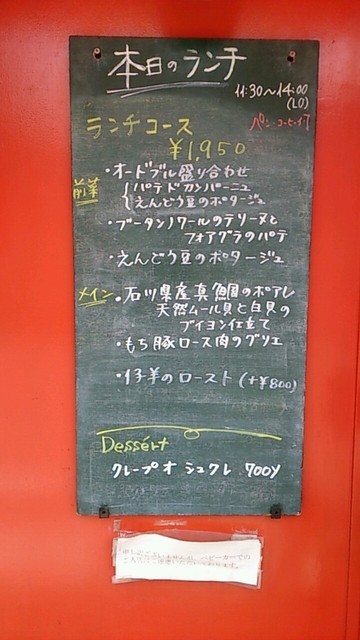 本日のランチ
11:30〜14:00
(LO)
ランチコース
パン・コーヒー付
¥1,950
前菜
・オードブル盛り合わせ
パテドカンパーニュ
えんどう豆のポタージュ
・ブータンノワールのテリーヌと
フォアグラのパテ
・えんどう豆のポタージュ
メイン
・石川県産真鯛のポアレ
天然ムール貝と白貝の
ブイヨン仕立て
・もち豚ロース肉のグリエ
・仔羊のロースト(+¥800)
Dessért
クレープオ シュクレ 700y
申し訳ございませんが、ベビーカーでの